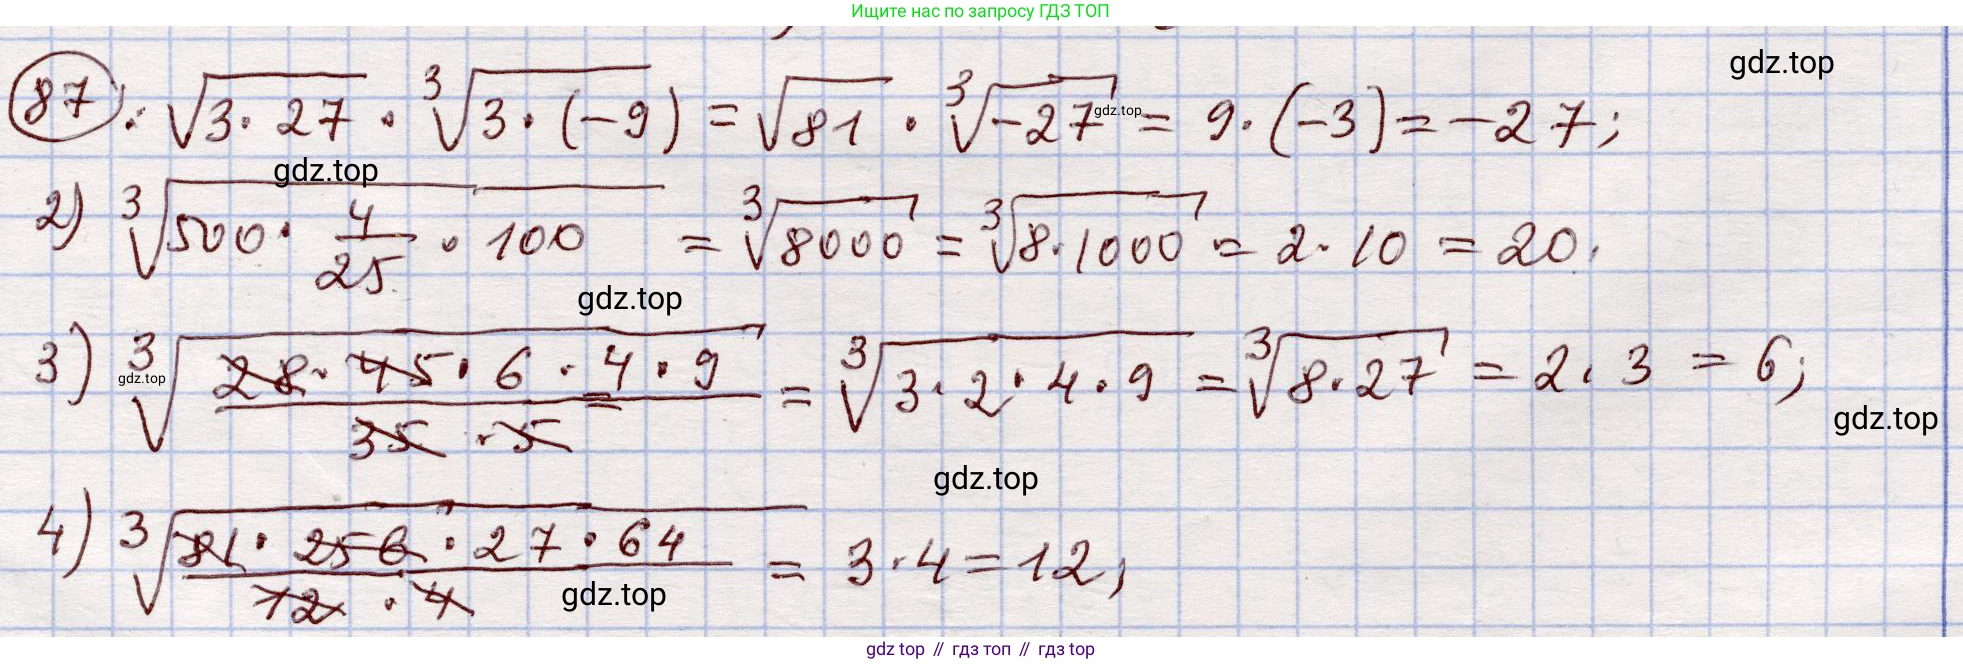 Ищите нас по запросу ГДЗ ТОП
gdz.top
87) : √(3·27) · ∛(3·(−9)) = √81 · ∛(−27) = 9·(−3) = −27;
gdz.top
gdz.top
2) ∛(500 · 4/25 · 100) = ∛8000 = ∛(8·1000) = 2·10 = 20.
gdz.top
3) ∛((28·45·6·4·9)/(35·5)) = ∛(3·2·4·9) = ∛(8·27) = 2·3 = 6;
gdz.top
gdz.top
gdz.top
4) ∛((81·256·27·64)/(12·4)) = 3·4=12;
gdz.top
gdz top // гдз топ // гдз top